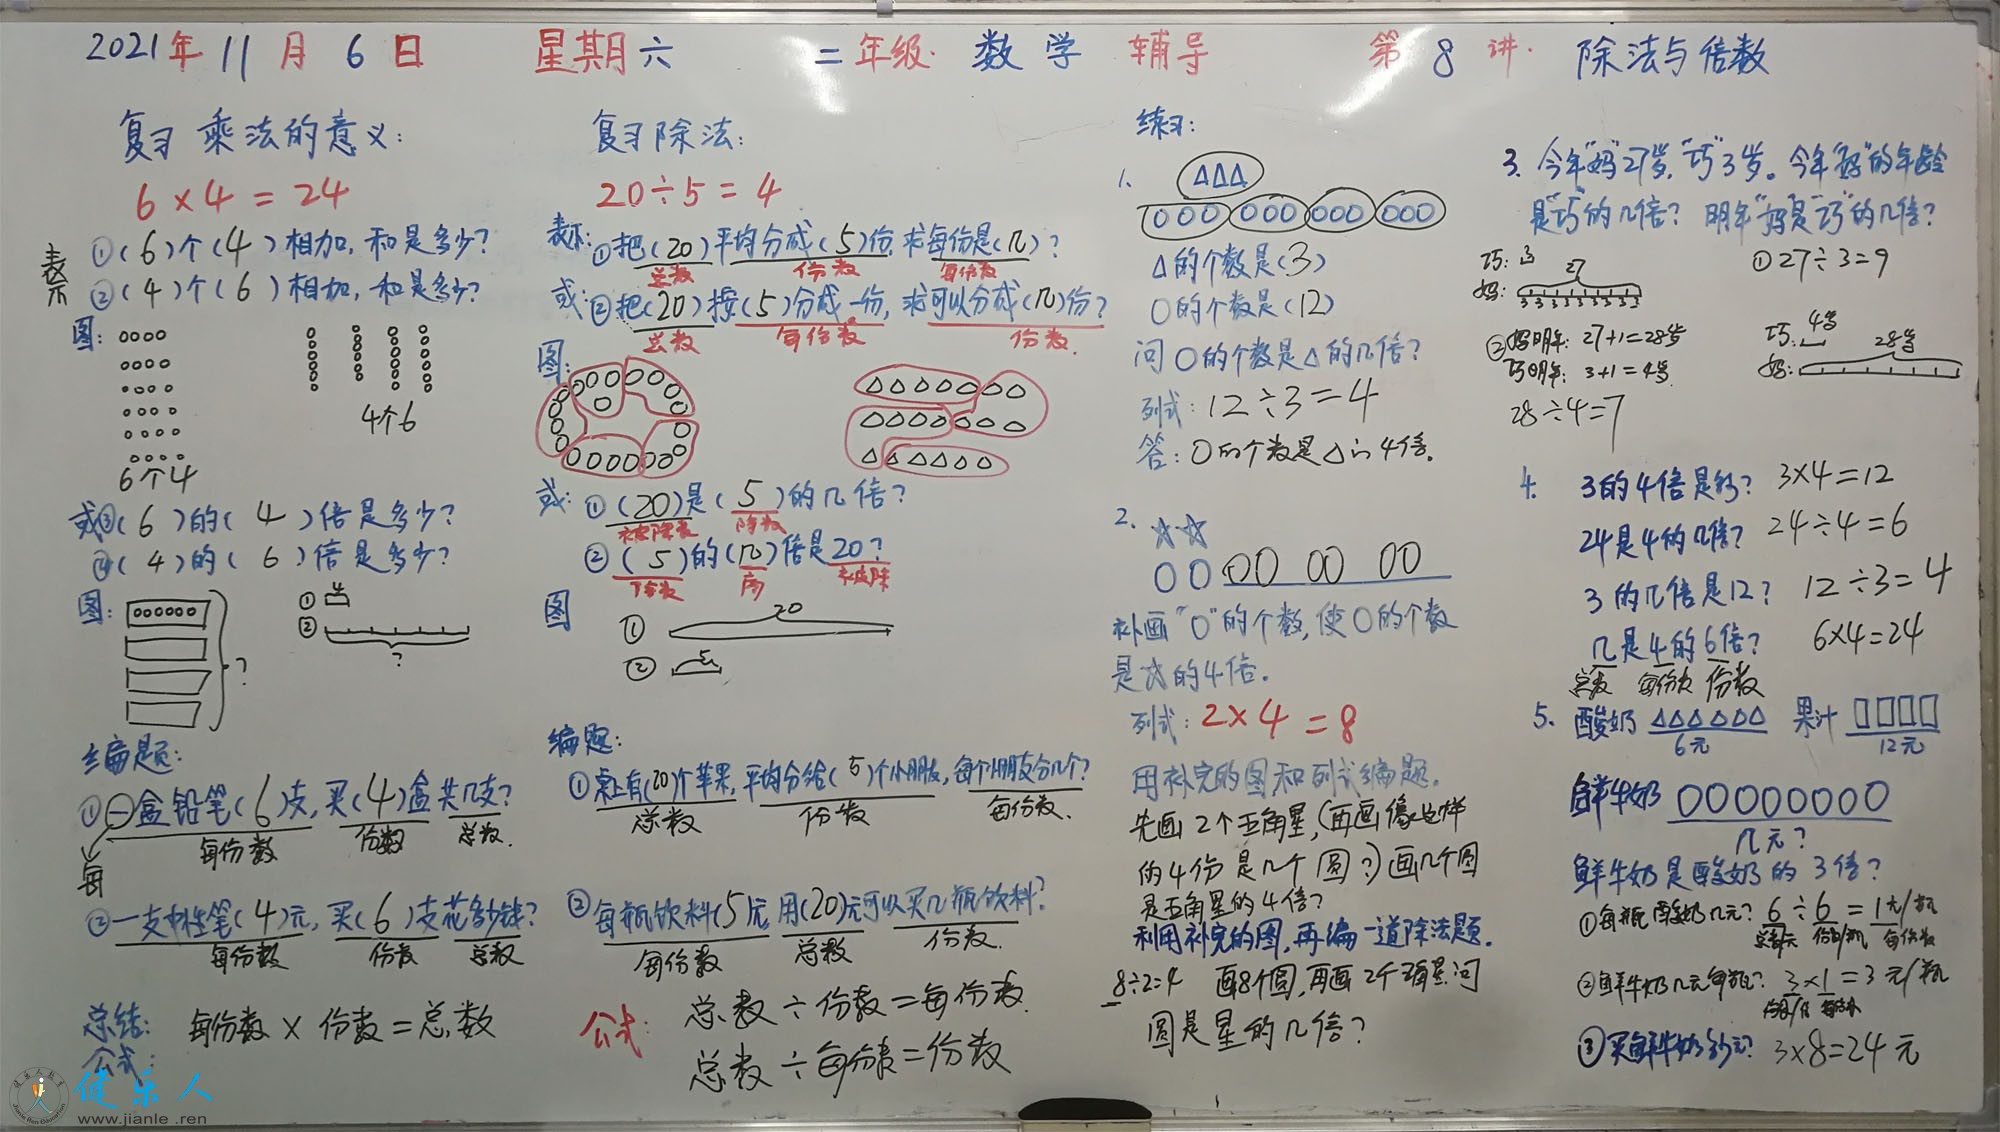 2021年 11 月 6 日 星期六 二年级· 数学 辅导 第 8 讲· 除法与倍数
复习 乘法的意义:
6 × 4 = 24
表示
①(6)个(4)相加,和是多少?
②(4)个(6)相加,和是多少?
图:
6个4
4个6
或③(6)的(4)倍是多少?
④(4)的(6)倍是多少?
图:
?
① 4
②
?
编题:
①一盒铅笔(6)支,买(4)盒共几支?
每份数 份数 总数.
每
②一支中性笔(4)元,买(6)支花多少钱?
每份数 份数 总数
总结: 每份数 × 份数 = 总数
公式:
复习除法:
20÷5=4
表示:①把(20)平均分成(5)份,求每份是(几)?
总数 份数 每份数
或:②把(20)按(5)分成一份,求可以分成(几)份?
总数 每份数 份数.
图:
或:①(20)是(5)的几倍?
被除数 除数
②(5)的(几)倍是20?
除数 商 被除
图
① 20
② 5
编题:
①桌上有(20)个苹果,平均分给(5)个小朋友,每个小朋友分几个?
总数 份数 每份数.
②每瓶饮料(5)元,用(20)元可以买几瓶饮料?
每份数 总数 份数.
公式: 总数÷份数=每份数.
总数÷每份数=份数
练习:
1.
△的个数是(3)
○的个数是(12)
问○的个数是△的几倍?
列式:12÷3=4
答:○的个数是△的4倍。
2.
补画"○"的个数,使○的个数
是☆的4倍.
列式:2×4=8
用补完的图和列式编题.
先画2个五角星,(再画像这样
的4份是几个圆?)画几个圆
是五角星的4倍?
利用补完的图,再编一道除法题.
8÷2=4 画8个圆,再画2个五角星.问
圆是星的几倍?
3. 今年"妈"27岁,"巧"3岁。今年"妈"的年龄
是"巧"的几倍? 明年"妈"是"巧"的几倍?
巧: 3
27
妈:
3 3 3 3 3 3 3 3 3
①27÷3=9
②妈明年: 27+1=28岁
巧明年: 3+1=4岁
28÷4=7
巧: 4岁
28岁
妈:
4. 3的4倍是多少? 3×4=12
24是4的几倍? 24÷4=6
3的几倍是12? 12÷3=4
几是4的6倍? 6×4=24
总数 每份数 份数
5. 酸奶 △△△△△△ 果汁 □□□□
6元 12元
鲜牛奶 ○○○○○○○○
几元?
鲜牛奶是酸奶的3倍?
①每瓶酸奶几元? 6÷6=1元/瓶
总数/元 份数/瓶 每份数
②鲜牛奶几元每瓶? 3×1=3元/瓶
③买鲜牛奶多少元? 3×8=24元
健乐人
www.jianle.ren